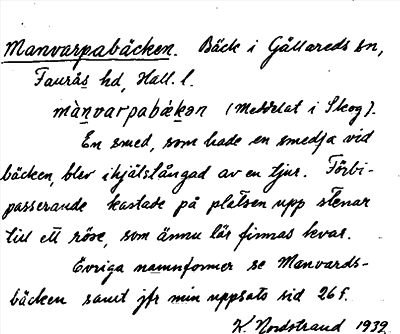 Manvarpabäcken. Bäck i Gällareds sn,
Faurås hd, Hall. l.
mànvarpabákən (Meddelat i Skog).
En smed, som hade en smedja vid
bäcken, blev ihjälstångad av en tjur. Förbi-
passerande kastade på platsen upp stenar
till ett röse, som ännu lär finnas kvar.
Övriga namnformer se Manvards-
bäcken samt jfr min uppsats sid 26 f.
K. Nordstrand 1932